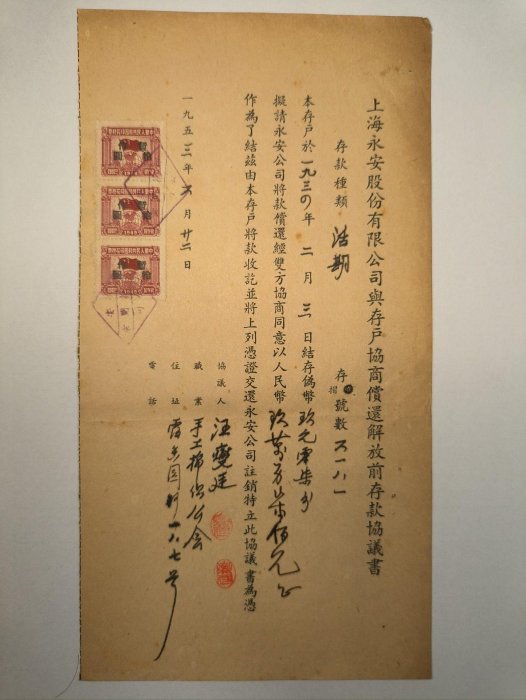 上海永安股份有限公司與存戶協商償還解放前存款協議書
存款種類 活期 存摺號數 不一八一
本存戶於一九三〇年 二 月 三 日結存偽幣 玖元零柒分
擬請永安公司將款償還經雙方協商同意以人民幣 玖萬 柒佰元正
作為了結茲由本存戶將款收訖並將上列憑證交還永安公司註銷特立此協議書為憑
協議人 汪變廷
職業 手工棉 公會
住址 一八七号
電話
一九五三年 月 廿二日